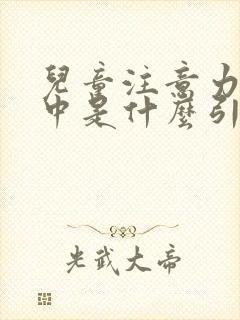 兒童注意力
中是什麼引
光武大帝